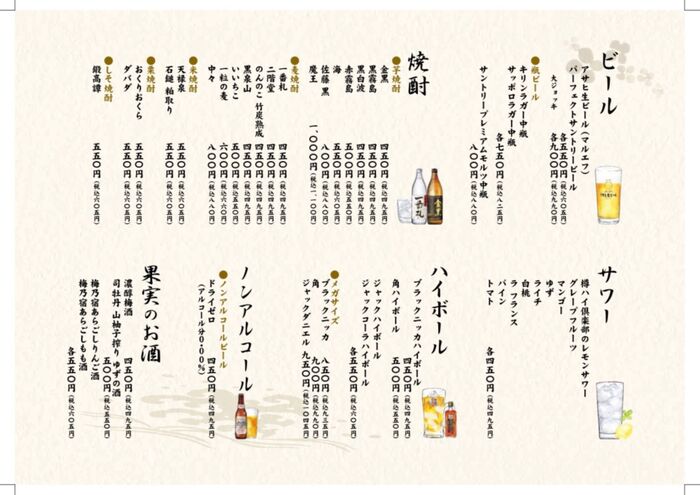 ビール
アサヒ生ビール（マルエフ）
パーフェクトサントリービール
各五五〇円（税込六〇五円）
大ジョッキ 各九〇〇円（税込九九〇円）
●瓶ビール
キリンラガー中瓶
サッポロラガー中瓶
各七五〇円（税込八二五円）
サントリープレミアムモルツ中瓶
八〇〇円（税込八八〇円）
焼酎
●芋焼酎
金黒 四五〇円（税込四九五円）
黒霧島 四五〇円（税込四九五円）
黒白波 四五〇円（税込四九五円）
赤霧島 五五〇円（税込六〇五円）
海 五五〇円（税込六〇五円）
佐藤 黒 八〇〇円（税込八八〇円）
魔王 一、〇〇〇円（税込一、一〇〇円）
●麦焼酎
一番札 四五〇円（税込四九五円）
二階堂 四五〇円（税込四九五円）
のんのこ 竹炭熟成 四五〇円（税込四九五円）
黒泉山 四五〇円（税込四九五円）
いいちこ 五五〇円（税込六〇五円）
一粒の麦 六〇〇円（税込六六〇円）
中々 八〇〇円（税込八八〇円）
●米焼酎
天様泉 五五〇円（税込六〇五円）
石鎚 粕取り 五五〇円（税込六〇五円）
●栗焼酎
おくりおくら 五五〇円（税込六〇五円）
ダバダ 五五〇円（税込六〇五円）
●しそ焼酎
鍛高譚 五五〇円（税込六〇五円）
サワー
樽ハイ倶楽部のレモンサワー
グレープフルーツ
マンゴー
ゆず
ライチ
白桃
ラ フランス
パイン
トマト 各四五〇円（税込四九五円）
ハイボール
ブラックニッカハイボール
四五〇円（税込四九五円）
角ハイボール 五〇〇円（税込五五〇円）
ジャックハイボール
ジャックコーラハイボール
各五五〇円（税込六〇五円）
●メガサイズ
ブラックニッカ 八五〇円（税込九三五円）
角 九〇〇円（税込九九〇円）
ジャックダニエル 九五〇円（税込一〇四五円）
ノンアルコール
●ノンアルコールビール
ドライゼロ 四五〇円（税込四九五円）
（アルコール分0.00%）
果実のお酒
濃醇梅酒 四五〇円（税込四九五円）
司牡丹 山柚子搾り ゆずの酒
五〇〇円（税込五五〇円）
梅乃宿あらごしりんご酒
梅乃宿あらごしもも酒
各五五〇円（税込六〇五円）